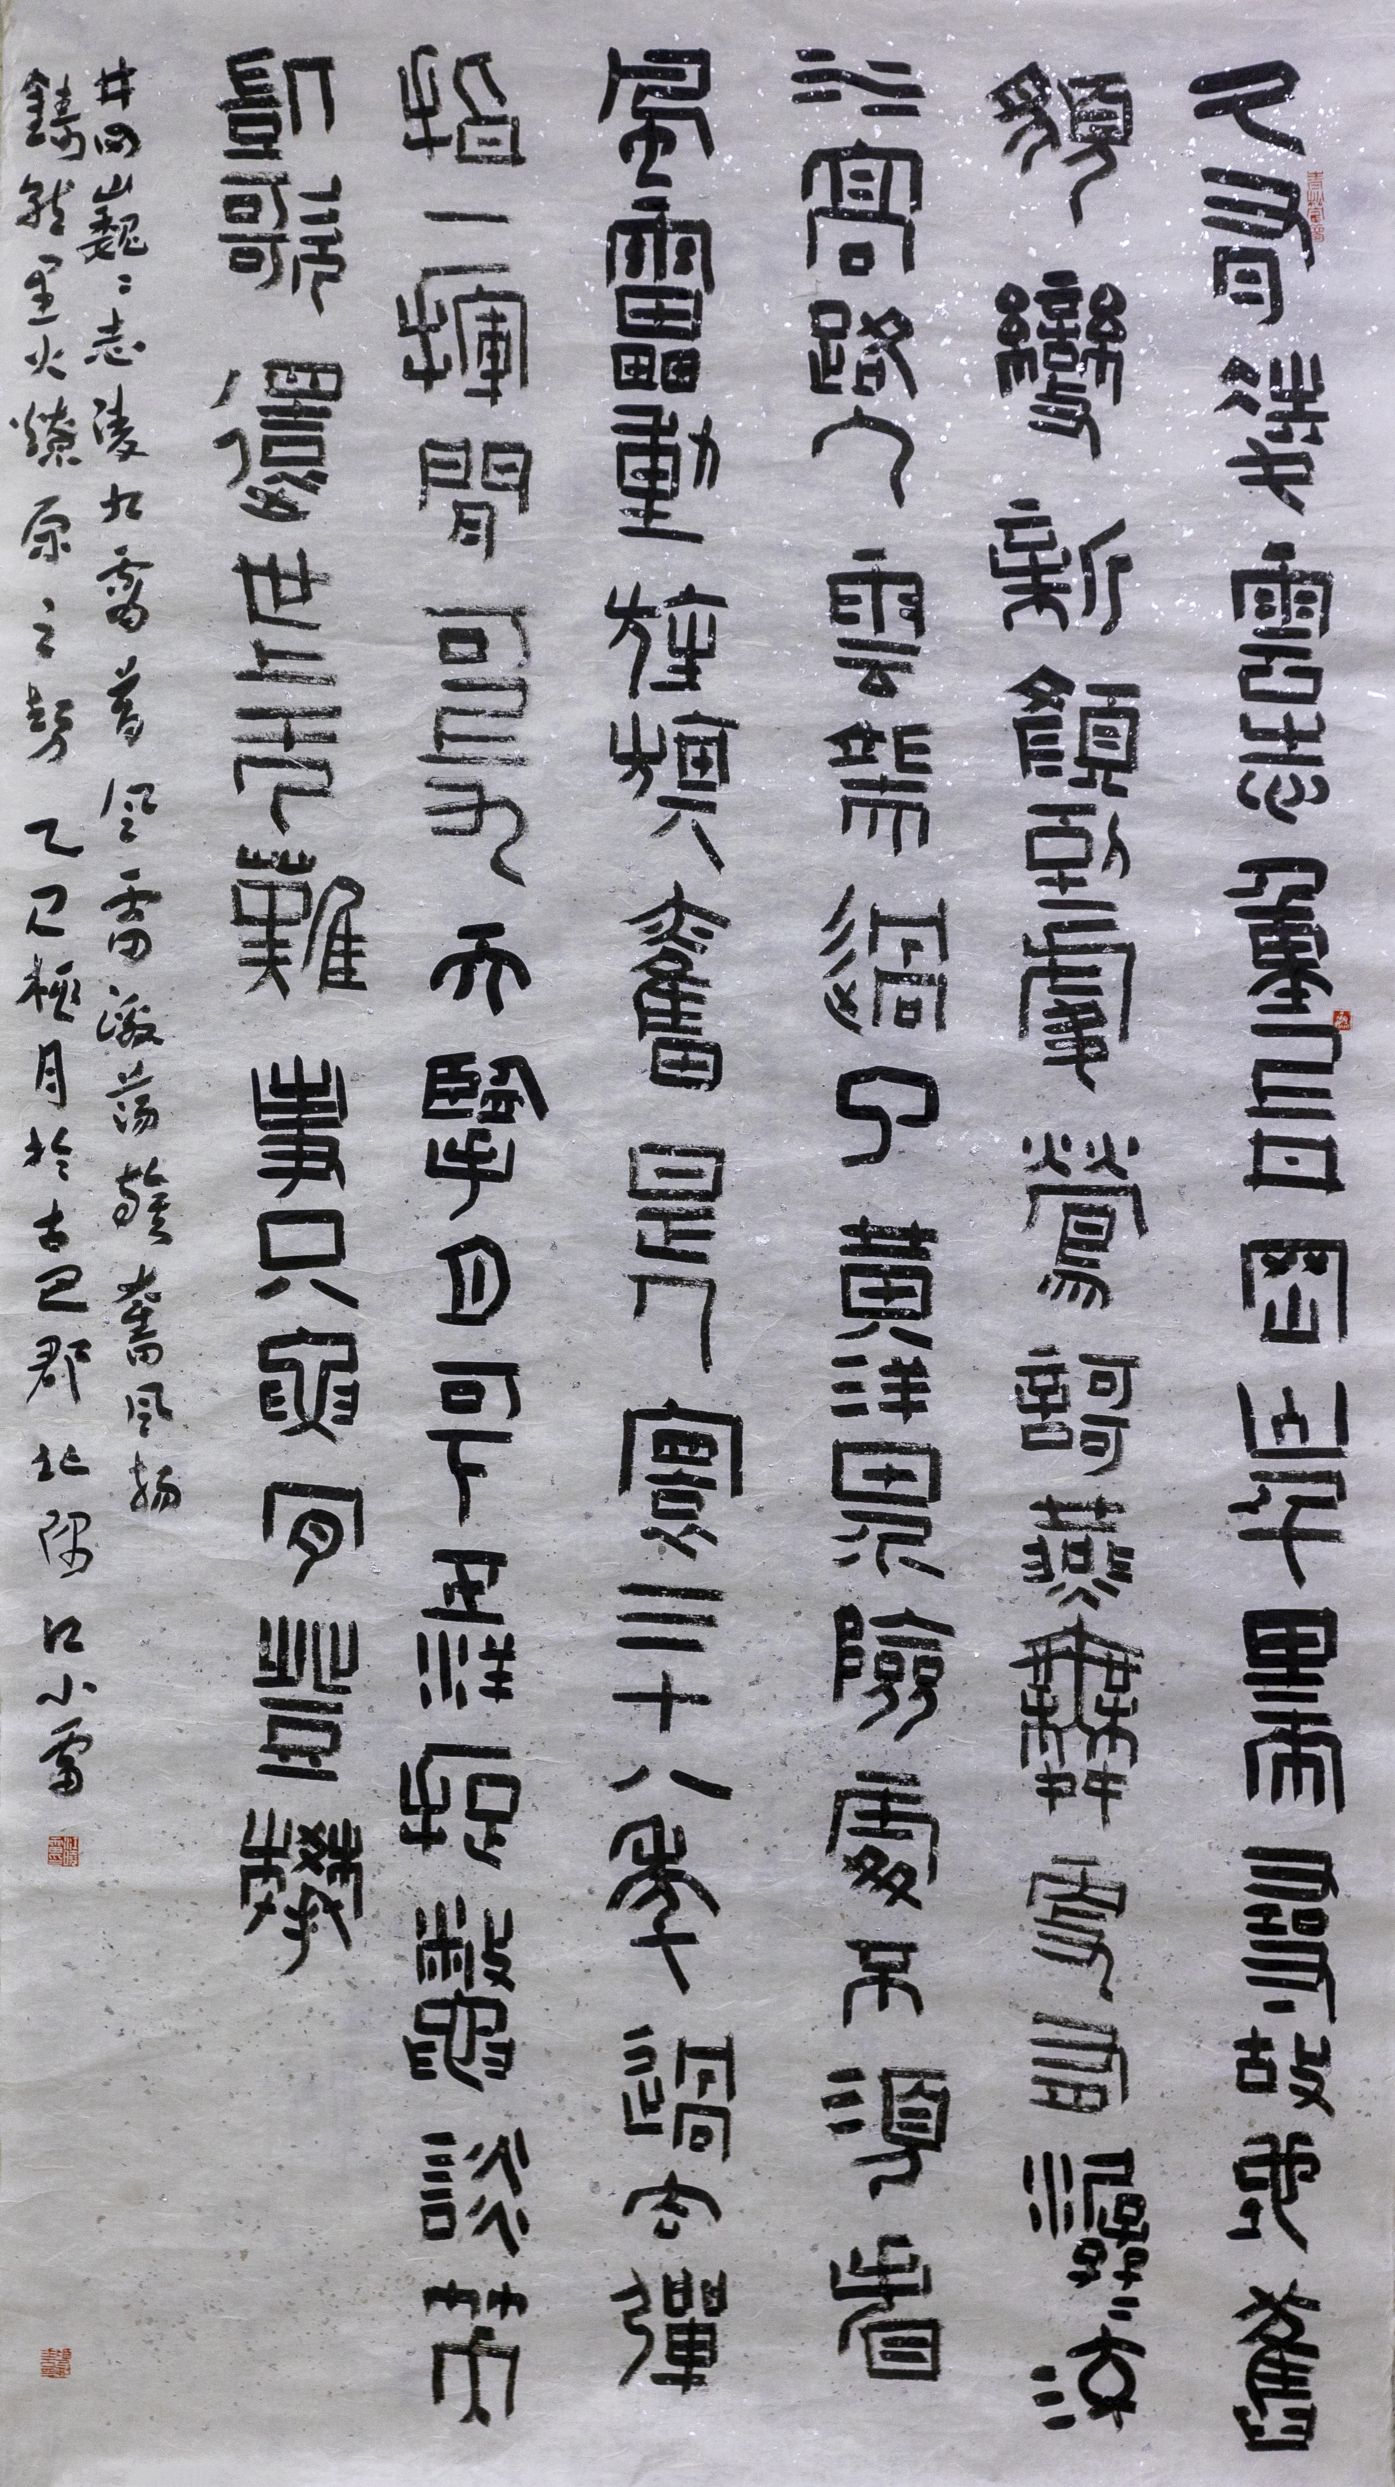 久有凌雲志重上井岡山千里來尋故地舊
貌變新顏到處鶯謌燕舞更有潺〻流
水高路入雲端過了黃洋界險處不須看
風雷動旌旗奮是人寰三十八年過去彈
指一揮間可上九天攬月可下五洋捉鱉談笑
凱歌還世上無難事只要肯登攀
井岡山巍〻志凌九霄雷激蕩奮風揚
鑄就星火燎原之勢乙巳極月於古巴郡北隅